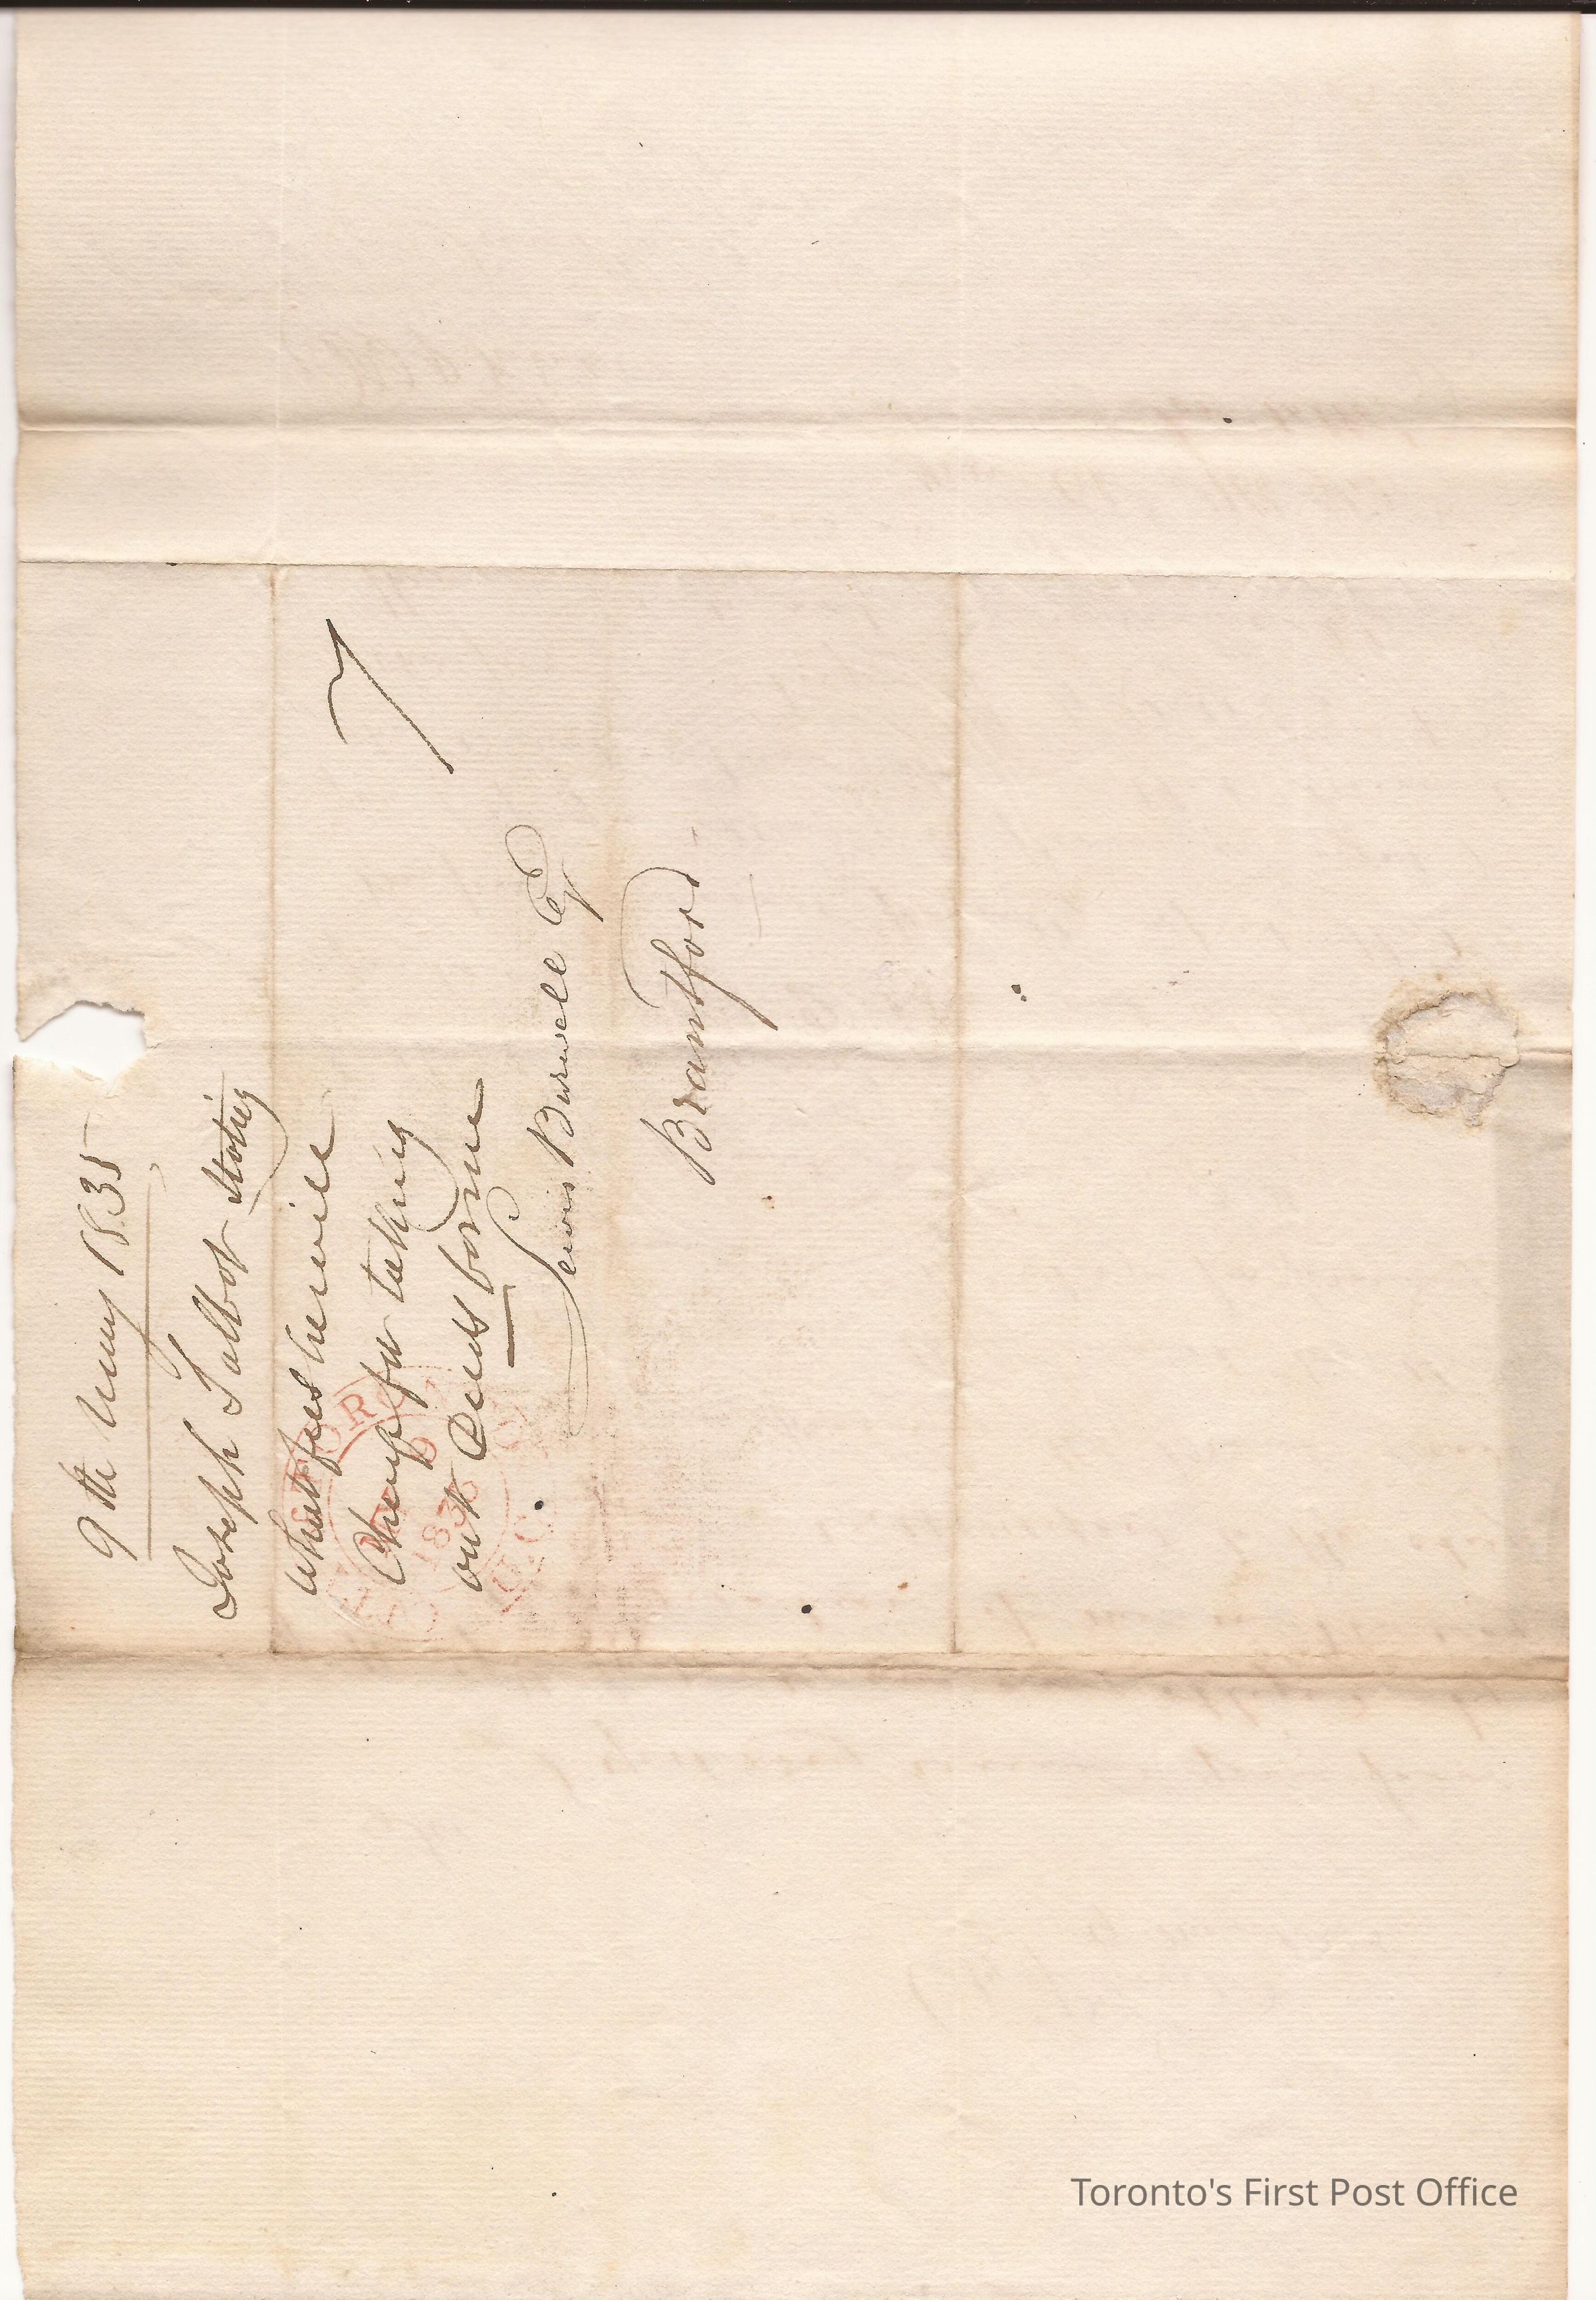 9th May 1835
Joseph Talbot Stating
what fees he will
Charge for taking
out Deeds borne
7
Lewis Burwell Esq
Brantford
1835
U.C.
Toronto's First Post Office